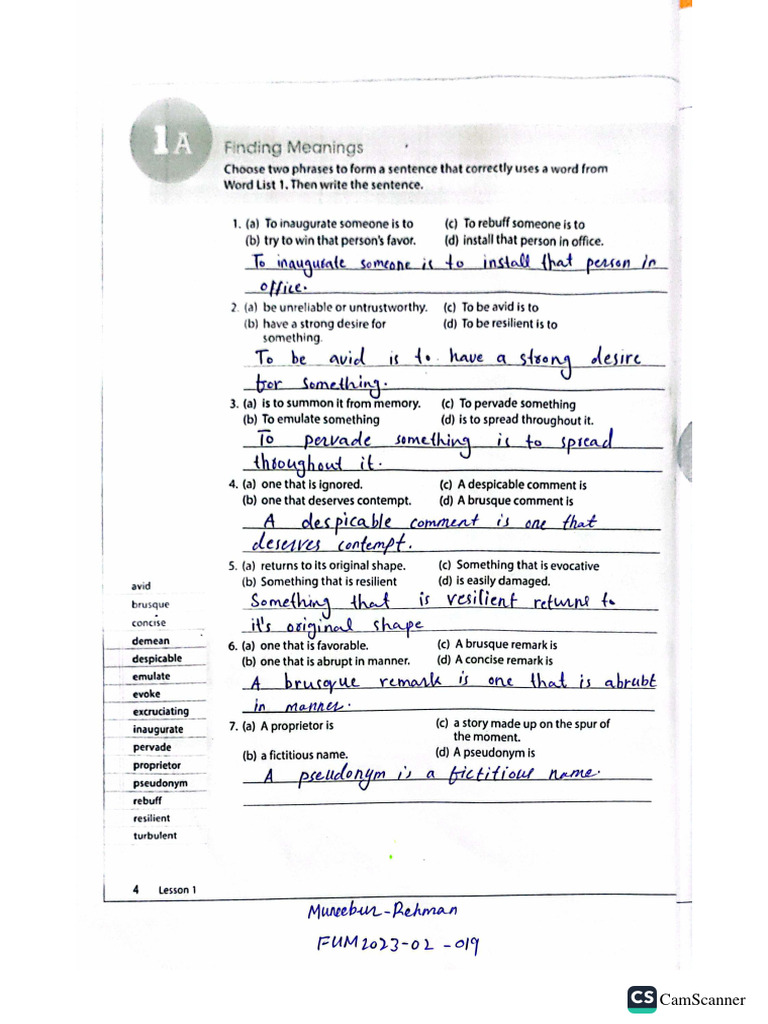 1A
Finding Meanings
Choose two phrases to form a sentence that correctly uses a word from
Word List 1. Then write the sentence.
1. (a) To inaugurate someone is to (c) To rebuff someone is to
(b) try to win that person's favor. (d) install that person in office.
To inaugurate someone is to install that person in
office.
2. (a) be unreliable or untrustworthy. (c) To be avid is to
(b) have a strong desire for (d) To be resilient is to
something.
To be avid is to have a strong desire
for something.
3. (a) is to summon it from memory. (c) To pervade something
(b) To emulate something (d) is to spread throughout it.
To pervade something is to spread
throughout it.
4. (a) one that is ignored. (c) A despicable comment is
(b) one that deserves contempt. (d) A brusque comment is
A despicable comment is one that
deserves contempt.
5. (a) returns to its original shape. (c) Something that is evocative
(b) Something that is resilient (d) is easily damaged.
Something that is resilient returns to
it's original shape
6. (a) one that is favorable. (c) A brusque remark is
(b) one that is abrupt in manner. (d) A concise remark is
A brusque remark is one that is abrubt
in manner.
7. (a) A proprietor is (c) a story made up on the spur of
the moment.
(b) a fictitious name. (d) A pseudonym is
A pseudonym is a fictitious name.
avid
brusque
concise
demean
despicable
emulate
evoke
excruciating
inaugurate
pervade
proprietor
pseudonym
rebuff
resilient
turbulent
4 Lesson 1
Muneebur-Rehman
FUM2023-02-019
CS CamScanner